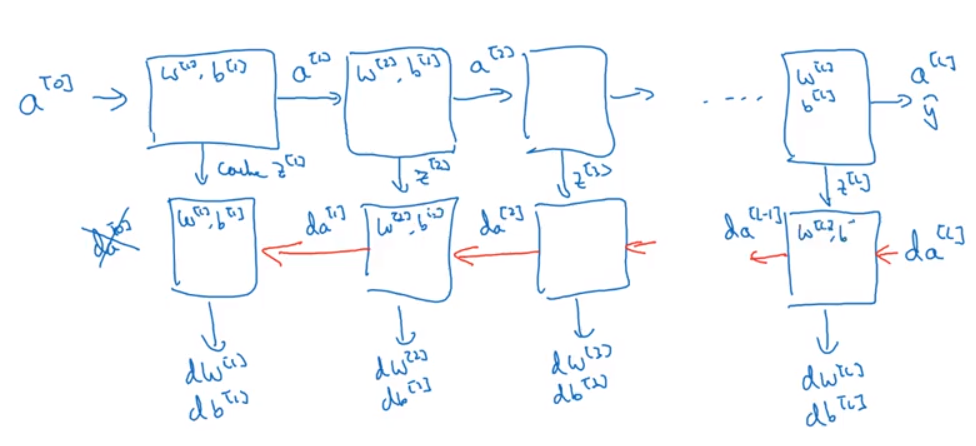 a^[0] → w^[1], b^[1] a^[1] w^[2], b^[2] a^[2] .... w^[L] a^[L]
b^[L] ŷ
cache z^[1] z^[2] z^[3] z^[L]
da^[0] w^[1], b^[1] da^[1] w^[2], b^[2] da^[2] da^[L-1] w^[L], b da^[L]
dw^[1] dw^[2] dw^[3] dw^[L]
db^[1] db^[2] db^[3] db^[L]